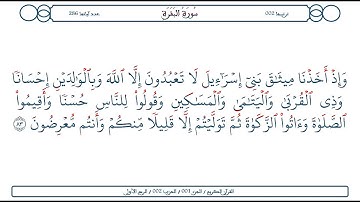 ترتيبها 002 سُورَةُ البَقَرَةِ عدد آياتها 286
وَإِذْ أَخَذْنَا مِيثَٰقَ بَنِىٓ إِسْرَٰٓءِيلَ لَا تَعْبُدُونَ إِلَّا ٱللَّهَ وَبِٱلْوَٰلِدَيْنِ إِحْسَانًا
وَذِى ٱلْقُرْبَىٰ وَٱلْيَتَٰمَىٰ وَٱلْمَسَٰكِينِ وَقُولُوا۟ لِلنَّاسِ حُسْنًا وَأَقِيمُوا۟
ٱلصَّلَوٰةَ وَءَاتُوا۟ ٱلزَّكَوٰةَ ثُمَّ تَوَلَّيْتُمْ إِلَّا قَلِيلًا مِّنكُمْ وَأَنتُم مُّعْرِضُونَ ٨٣
القرآن الكريم / الجزء 001 / الحزب 002 / الربع الأول